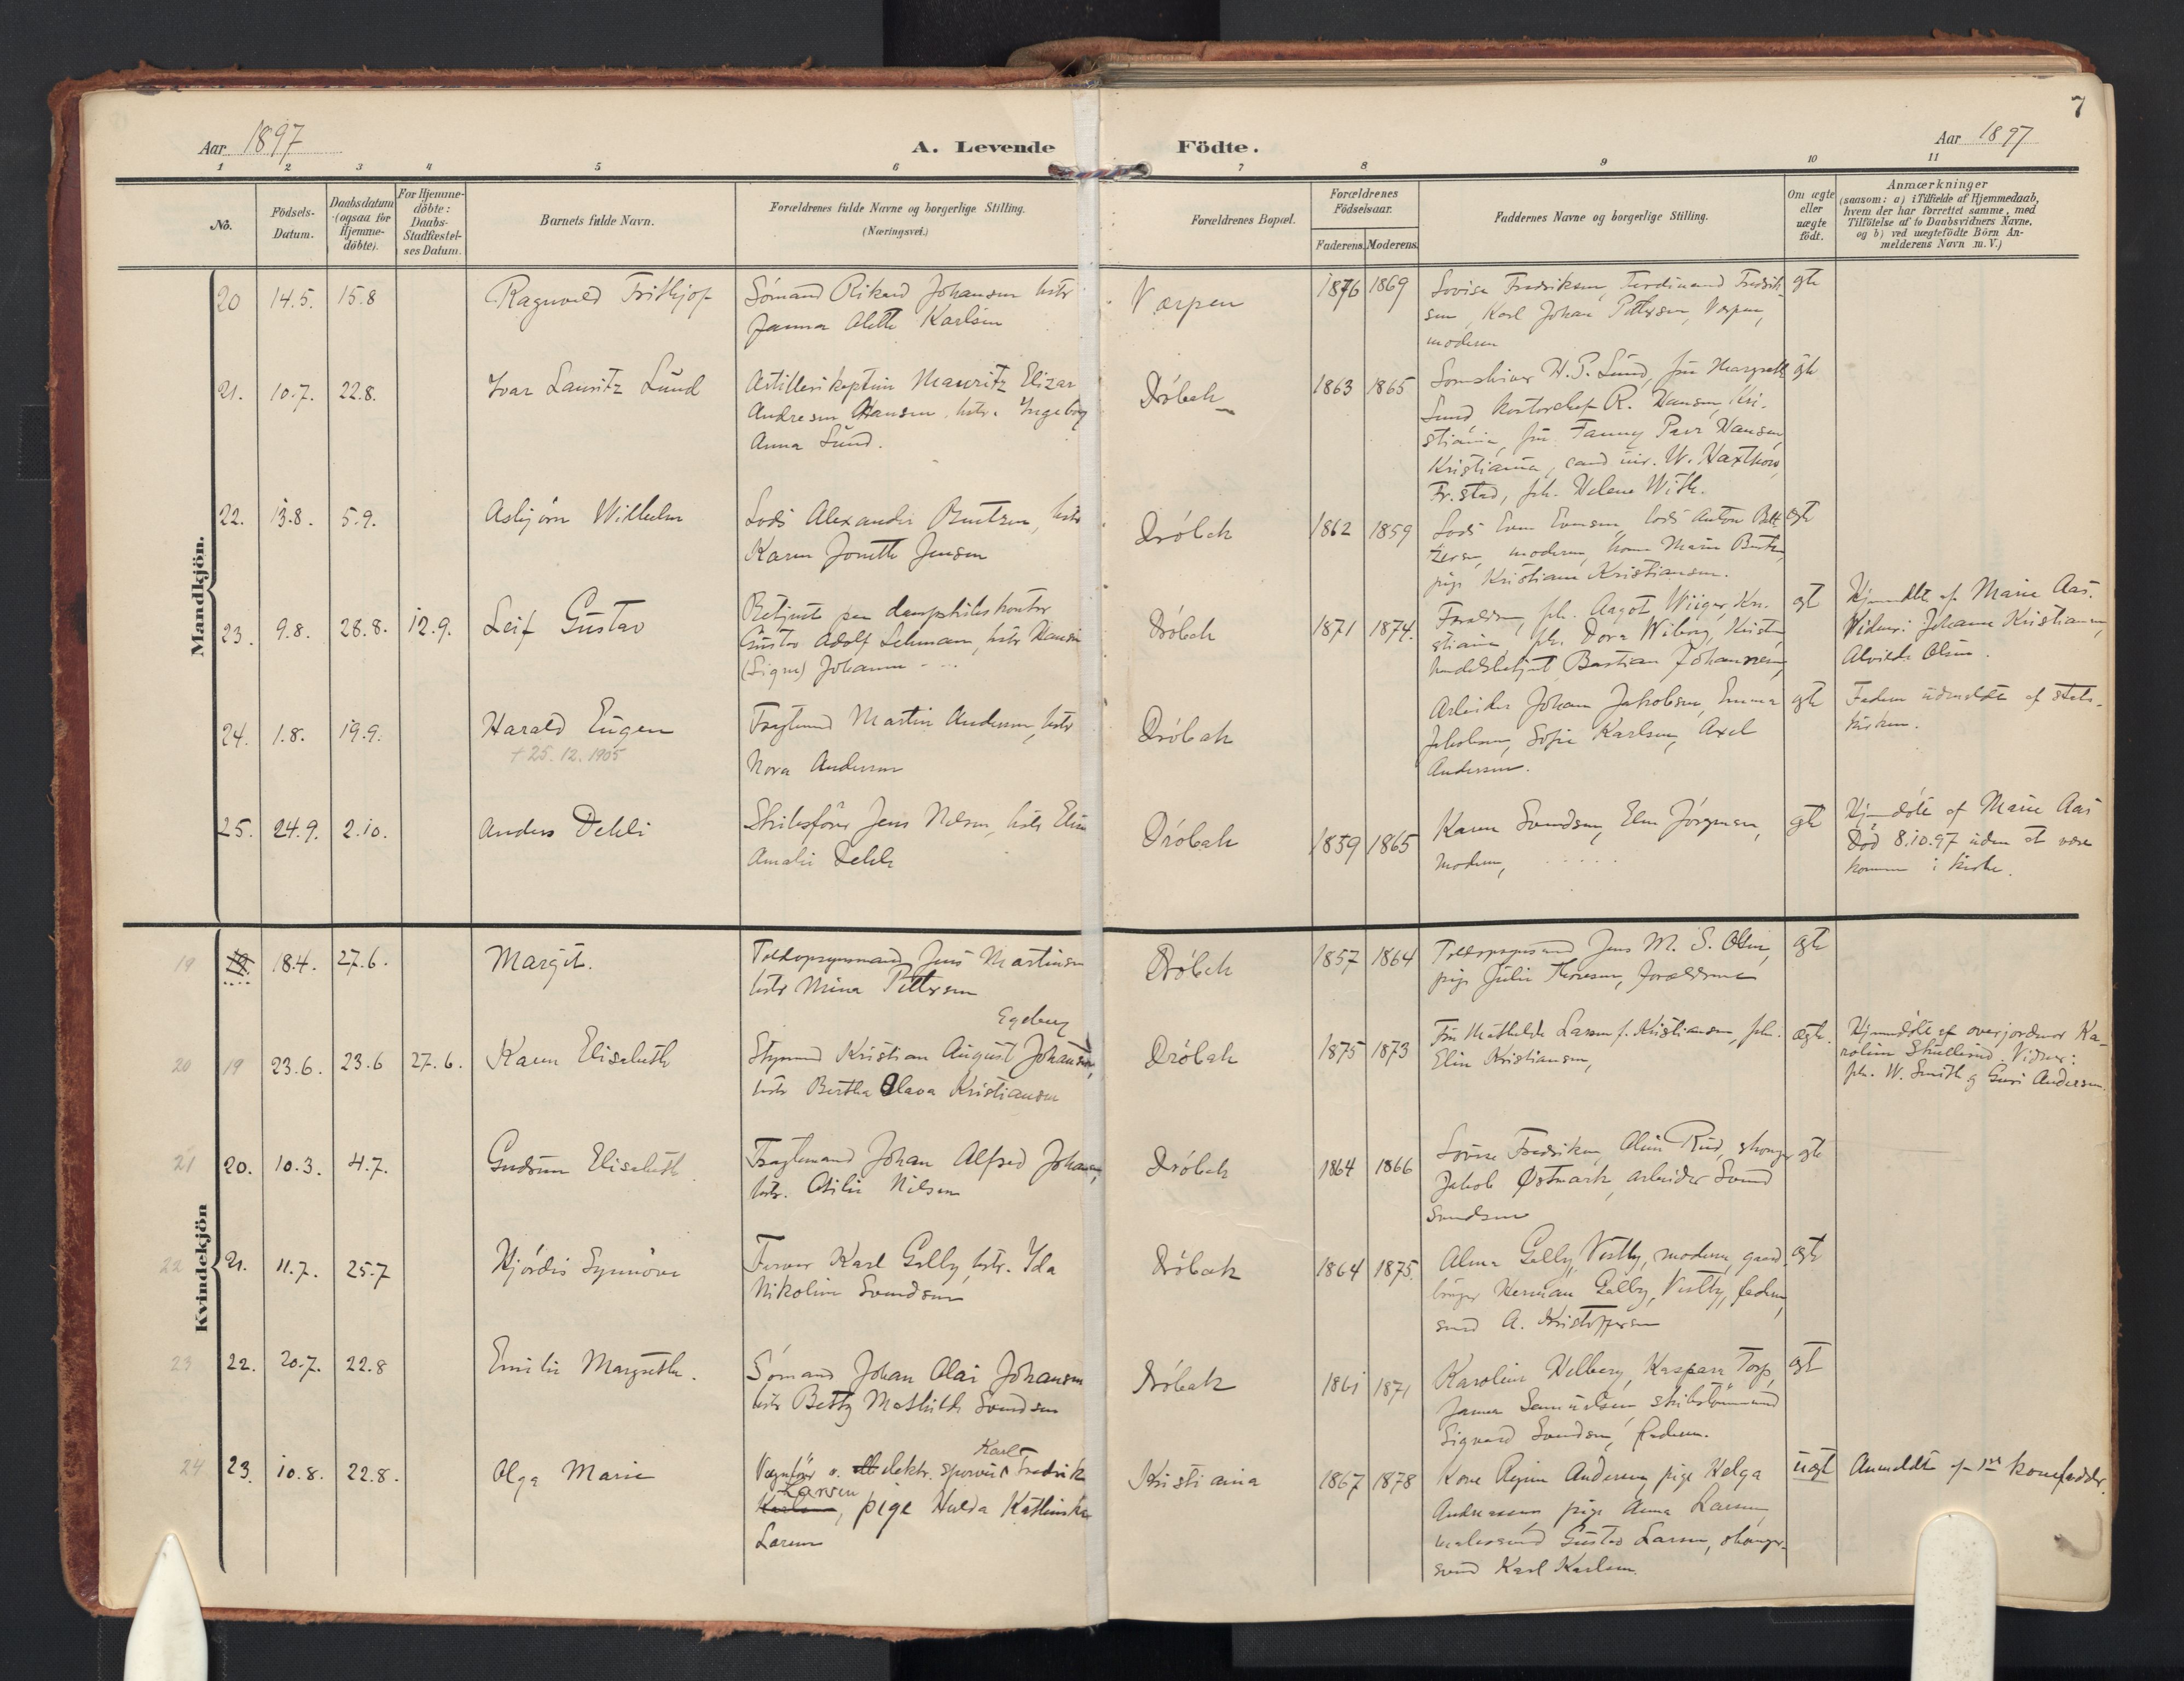 7
Aar 1897
A. Levende Födte.
Aar 1897
1 2 3 4 5 6 7 8 9 10 11
No.
Födsels-Datum.
Daabsdatum (ogsaa for Hjemme-döbte).
For Hjemme-döbte: Daabs-Stadfæstel-ses Datum.
Barnets fulde Navn.
Forældrenes fulde Navne og borgerlige Stilling.
(Næringsvei.)
Forældrenes Bopæl.
Forældrenes Födselsaar.
Faderens. Moderens.
Faddernes Navne og borgerlige Stilling.
Om ægte eller uægte födt.
Anmærkninger
(saasom: a) i Tilfælde af Hjemmedaab,
hvem der har forrettet samme, med
Tilföielse af to Daabsvidners Navne,
og b) ved uægtefödte Börn An-
melderens Navn m.V.)
Mandkjön.
20 14.5. 15.8 Ragnvald Frithjof
Sömand Rikard Johansen hstr
Janna Alette Karlsen
Værpen
1876 1869
Lovise Fredriksen, Ferdinand Fredrik-
sen, Karl Johan Pettersen, Værpen,
moderen
gte
21. 10.7. 22.8. Ivar Lauritz Lund
Artillerikaptein Mauritz Elizar
Andresen Hansen, hstr. Ingeborg
Anna Lund.
Dröbak
1863 1865
H. P. Lund, fru Margrethe
Lund Kontorchef R. Hansen, Kri-
stiania, fru Fanny Hansen,
Kristiania, cand W. Haxthow,
Fr.stad, frk. Helene With.
gte
22. 13.8. 5.9. Asbjörn Wilhelm
Lods Alexander Berntzen, hstr
Karen Jonette Jensen
Dröbak
1862 1859
Lods Even Evensen, lods Anton
moderen, kone Marie
pige Kristiane Kristiansen.
ægte
23. 9.8. 28.8. 12.9. Leif Gustav
Betjent paa dampskibskontor
Gustav Adolf Lehmann, hstr
(Signe) Johanne - ...
Dröbak
1871 1874.
frk. Aagot Wiiger, Kri-
stiania, frk. Dora Wiborg,
handelsbetjent Bastian Johannesen,
gt
Hjemdbt af Marie Aas.
Vidner: Johanne Kristiansen,
Alvilde Olsen.
24. 1.8. 19.9. Harald Eugen
† 25.12.1905
Fragtmand Martin Andersen, hstr
Nora Andersen
Dröbak
Arbeider Johan Jakobsen, Emma
Jakobsen, Sofie Karlsen, Axel
Andersen.
gte
Faderen udmeldt af stats-
kirken.
25. 24.9. 2.10. Anders Dehli
Skibsförer Jens Nilsen, hstr Elise
Amalie Dehli
Dröbak
1859 1865
Karen Svendsen, Elen Jörgensen,
moderen, .....
gte
Hjemdöbt af Marie Aas
Död 8.10.97 uden at være
kommen i kirke.
Kvindekjön
19 19. 18.4. 27.6. Margit.
Toldopsynsmand Jens Martinsen
hstr Mina Pettersen
Dröbak
1857 1864
Toldopsynsmand Jens M. S. Olsen,
pige Julie Thoresen, forældrene
ægte
20 19 23.6. 23.6 27.6. Karen Elisabeth
Egeberg
Styrmand Kristian August Johansen,
hstr Bertha Olava Kristiansen
Dröbak
1875 1873
Fru Mathilde Larsen f. Kristiansen, frk.
Elise Kristiansen,
ægte.
Hjemmedöbt af overjordmor Ka-
roline Vidner:
frk. W. Smith og Guri Andersen.
21 20. 10.3. 4.7. Gudrun Elisabeth
Fragtmand Johan Alfred Johansen,
hstr. Otilie Nilsen
Dröbak
1864 1866
Lovise Fredriksen, Oline Rud,
Jakob Østmark, arbeider Svend
Svendsen
gte
22 21. 11.7. 25.7 Hjördis Synnöve
Farver Karl Galby, hstr. Ida
Nikoline Svendsen
Dröbak
1864 1875.
Alma Galby, Vestby, moderen, gaard-
bruger Herman Galby, Vestby, faderen,
svend A. Kristoffersen
ægte
23 22. 20.7. 22.8 Emilie Margrethe.
Sömand Johan Olai Johansen
hstr Betty Mathilde Svendsen
Dröbak
1861 1871
Karoline Helberg, Kaspara Torp,
Janna Samuelsen skibstömmermand
Sigvard Svendsen, faderen.
ægt
24 23. 10.8. 22.8. Olga Marie
Karl
Vognförer v. elektr. sporvei Fredrik
Larsen
pige Hulda Kathinka
Larsen
Kristiania
1867 1878
Kone Regine Andersen, pige Helga
Andreassen pige Anna Larsen,
malersvend Gustav Larsen,
svend Karl Karlsen.
uægt
Anmeldt af 1ste konefadder.